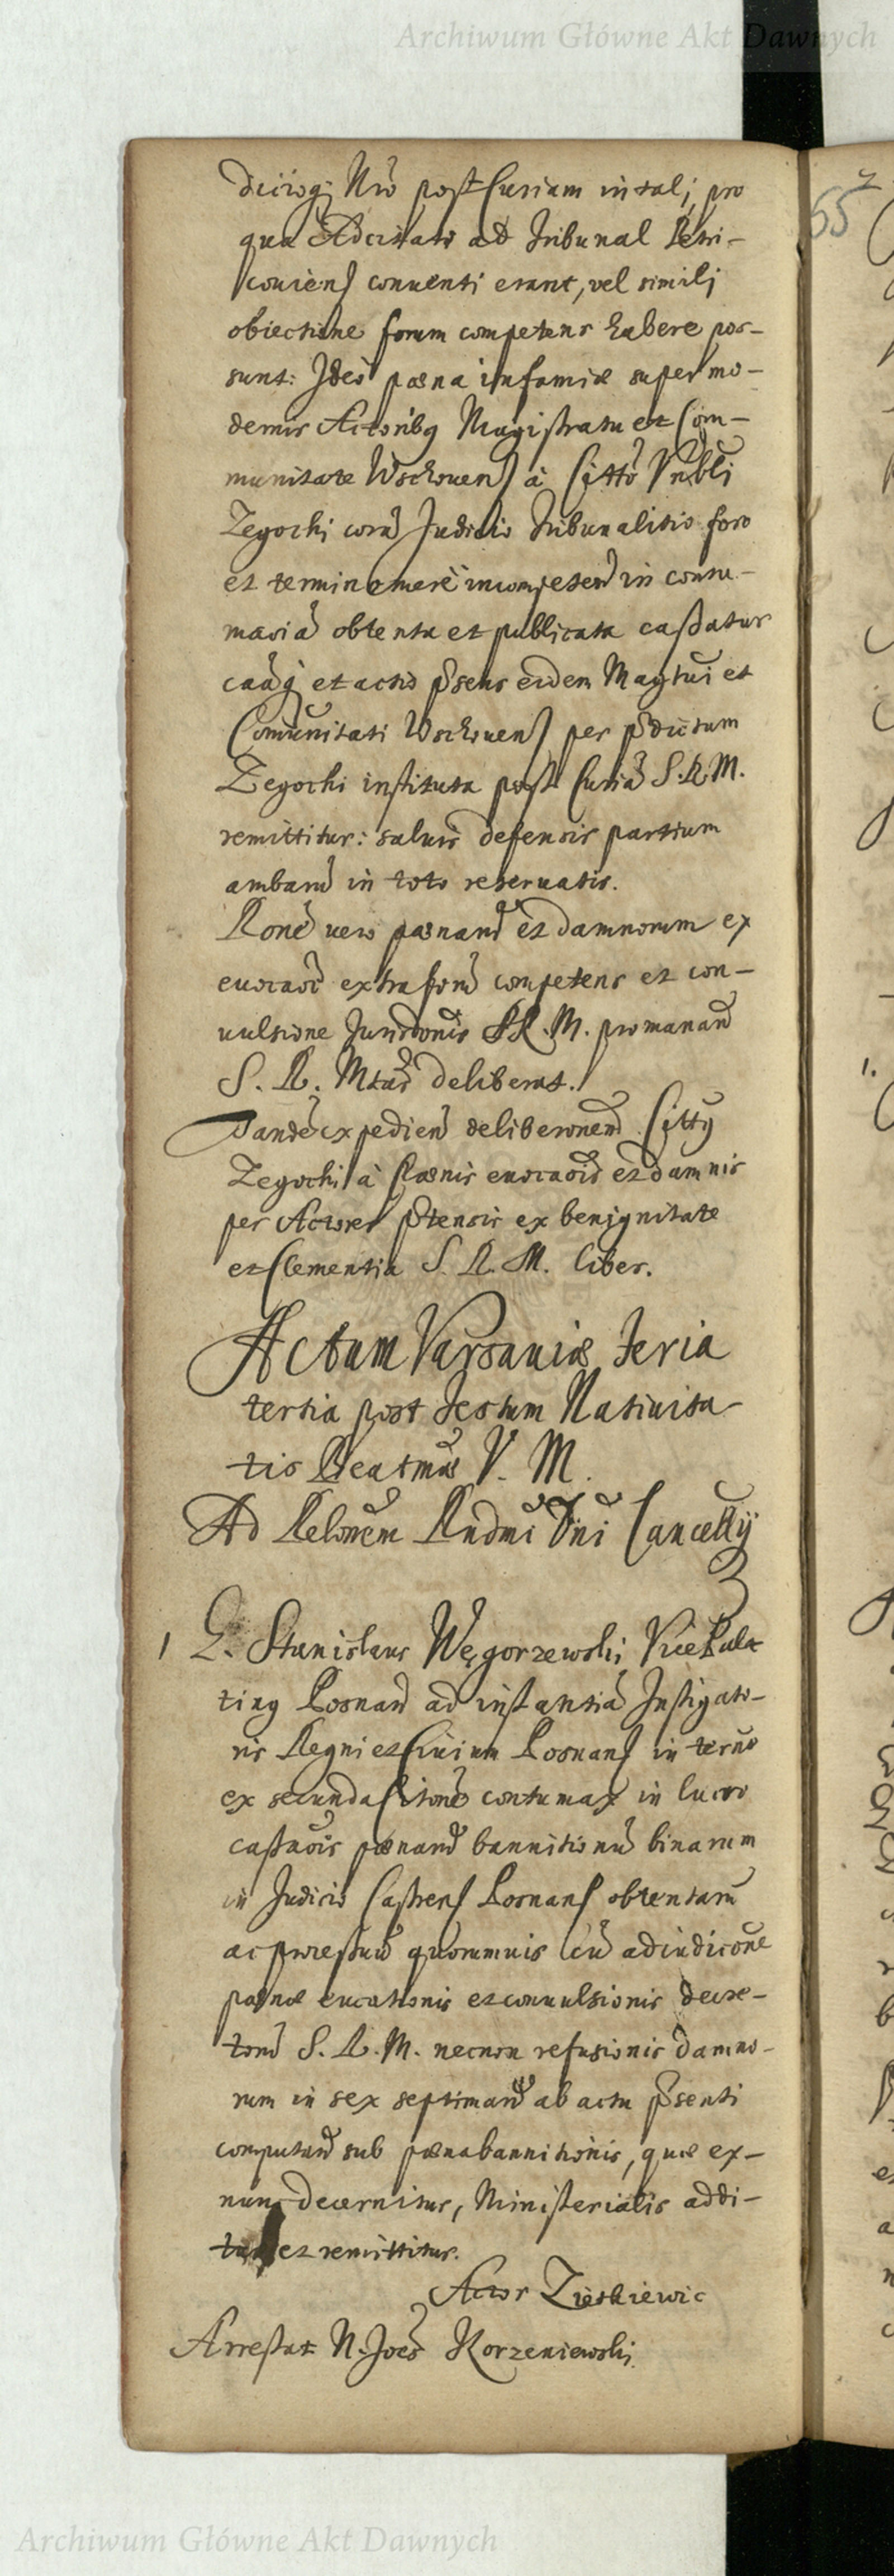 Archiwum Główne Akt Dawnych
diciog; Nro post Curiam in tali, pro
qua Adcitato ad Tribunal Petri-
couiens conuenti erant, vel simili
obiectione forum competens habere pos-
sunt: Ideo pæna infamiæ super mo-
dernis Actoribg Magistratu et Com-
munitate Wschouens à Citto Vrbli
Zegocki corã Judicio Tribunalitio foro
et termino mere incompeten in contu-
maciã obtenta et publicata cassatur
caãg et actio psens eidem Magtui et
Comunitati Wschouens per pdictum
Zegocki instituta post Curiã S.R.M.
remittitur: saluis defensis partium
ambarũ in toto reseruatis.
Rone vero pænarũ et damnorum ex
euocaoẽ extra forũ competens et con-
uulsione Jurisdonis S.R.M. promanan
S. R. Mtas deliberat.
Tandẽ expedien deliberonem Cittg
Zegocki à Pænis euocaois et damnis
per Actores ptensis ex benignitate
et Clementia S. R. M. liber.
Actum Varsauiæ Feria
tertia post Festum Natiuita
tis Beatmæ V. M.
Ad Relonem Rndmi Dni Cancellrij
65
1 G. Stanislaus Węgorzewski Vicepala
ting Posnan ad instantiã Instigato-
ris Regni et Ciuium Posnans in terno
ex secunda Citone contumax in lucro
cassaois pænarũ bannitionũ binarum
in Judicio Castrens Posnans obtentarũ
ac processuũ quorumuis cũ adiudicone
pænæ euocationis et conuulsionis decre-
torũ S. R. M. necnon refusionis damno-
rum in sex septimanis ab actu psenti
computan sub pæna bannitionis, quæ ex-
nunc decernitur, Ministerialis addi-
tur et remittitur.
Actor Zietkiewic
Arrestat N. Joes Korzeniewski
Archiwum Główne Akt Dawnych